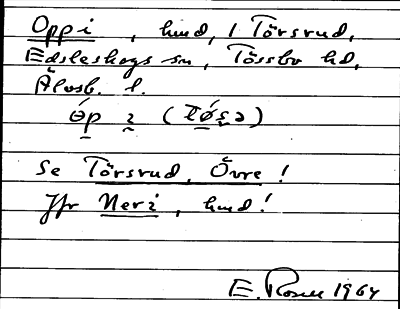 Oppi, hmd, i Törsrud,
Edsleskogs sn, Tössbo hd,
Älvsb. l.
óp i (tǿsə)
Se Törsrud, Övre!
Jfr Neri, hmd!
E. Rosell 1964